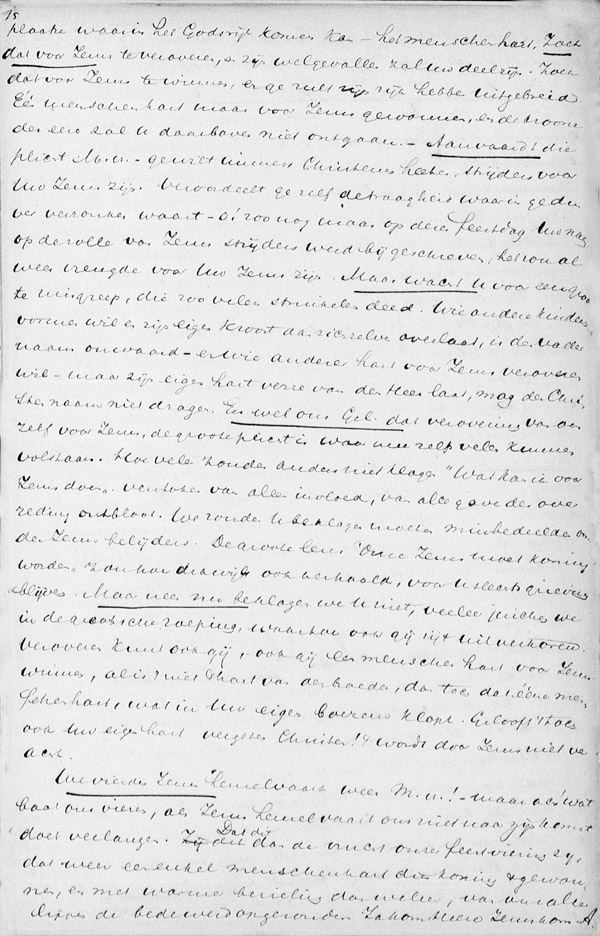 15
plaatse waarin het Godsrijk komen kan – het menschenhart. Zoek
dat voor Jezus te veroveren, en zijn welgevallen zal uw deel zijn. Zoek
dat voor Jezus te winnen, en ge zult zijn rijk hebben uitgebreid
Eén menschenhart maar voor Jezus gewonnen, en de kroone
der eere zal u daarboven niet ontgaan. – Aanvaardt die
plicht M. v. – ge wilt immers Christenen heeten, strijders voor
Uw Jezus zijn. Veroordeelt ge zelf de traagheid waarin ge dus
ver verzonken waart – o! zoo nog maar op dezen feestdag Uw naam
op de rolle van Jezus strijders werd bijgeschreven, het zou al
weer vreugde voor Uw Jezus zijn. Maar wacht U voor een groo
te misgreep, die zoo velen struikelen deed. Wie anderer kinders
vormen wil en zijn eigen kroost aan zich zelve overlaat, is den vader
naam onwaard – en wie anderer hart voor Jezus veroveren
wil – maar zijn eigen hart verre van den Heer laat, mag den Chris
ten naam niet dragen. En wel ons Gel. dat verovering van ons
zelf voor Jezus, de groote plicht is waarmee zelf velen kunnen
volstaan. Hoe velen zouden anders niet klagen "Wat kan ik voor
Jezus doen", verstoken van allen invloed, van alle gave der over
reding ontbloot. We zouden U beklagen moeten minbedeelden on
der Jezus belijders. De groote leus "Onze Jezus moet koning
worden" zou hoe dikwijls ook herhaald, voor U slechts grievend
blijven. Maar neen nu beklagen we U niet, veeleer juichen we
in de grootsche roeping, waartoe ook gij zijt uitverkoren.
Veroveren kunt ook gij, ook gij een menschenhart voor Jezus
winnen, al is 't niet 't hart van den broeder, dan toch dat ééne men
schenhart, wat in Uw eigen boezem klopt. Gelooft 't toch
ook Uw eigen hart vergeten Christen! 't wordt door Jezus niet ver
acht.
We vieren Jezus Hemelvaart weer M. v.! – maar ach! wat
baat ons vieren, als Jezus hemelvaart ons niet naar zijn komst
doet verlangen. Dat dit dan de vrucht onzer feestviering zij,
dat weer een enkel menschenhart dien koning zij gewon
nen, en met warme bezieling dan weder, van onz aller
lippen de bede werd opgezonden Ja kom Heere Jezus kom – A.